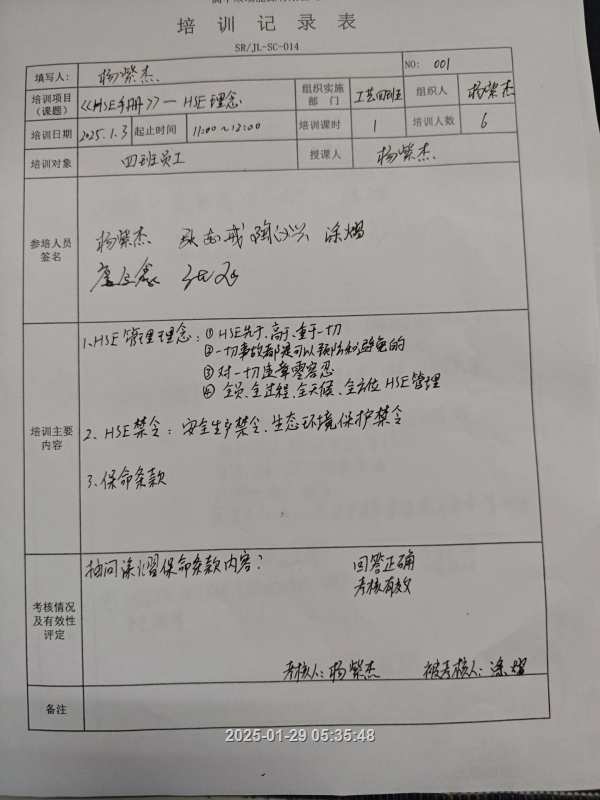 培训记录表
SR/JL-SC-014
填写人: 杨紫杰 NO: 001
培训项目(课题) 《HSE手册》— HSE理念 组织实施部门 工艺四班 组织人 杨紫杰
培训日期 2025.1.3 起止时间 11:00～12:00 培训课时 1 培训人数 6
培训对象 四班员工 授课人 杨紫杰
参培人员签名
杨紫杰
培训主要内容
1.HSE管理理念: ① HSE先于、高于、重于一切
② 一切事故都是可以预防和避免的
③ 对一切违章零容忍
④ 全员、全过程、全天候、全方位HSE管理
2. HSE禁令: 安全生产禁令、生态环境保护禁令
3.保命条款
考核情况及有效性评定
抽问涂熠保命条款内容: 回答正确
考核有效
考核人: 杨紫杰 被考核人: 涂熠
备注
2025-01-29 05:35:48